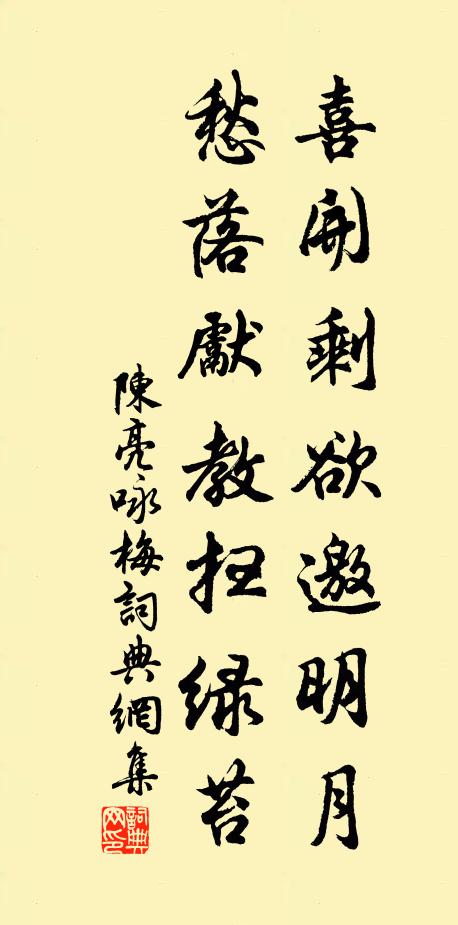 喜開剩欲邀明月
愁落獻教扫緑苔
陳亮咏梅詞典網集
詞典网印